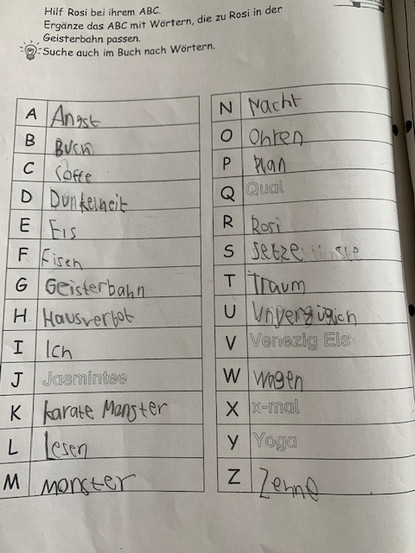 Hilf Rosi bei ihrem ABC.
Ergänze das ABC mit Wörtern, die zu Rosi in der
Geisterbahn passen.
Suche auch im Buch nach Wörtern.
A Angst
B Buch
C Coffe
D Dunkelheit
E Eis
F Eisen
G Geisterbahn
H Hausverbot
I Ich
J Jasmintee
K karate Monster
L Lesen
M Monster
N Nacht
O Ohren
P Plan
Q Qual
R Rosi
S Setze
T Traum
U Unverzüglich
V Venezig Eis
W Wagen
X x-mal
Y Yoga
Z Zehne